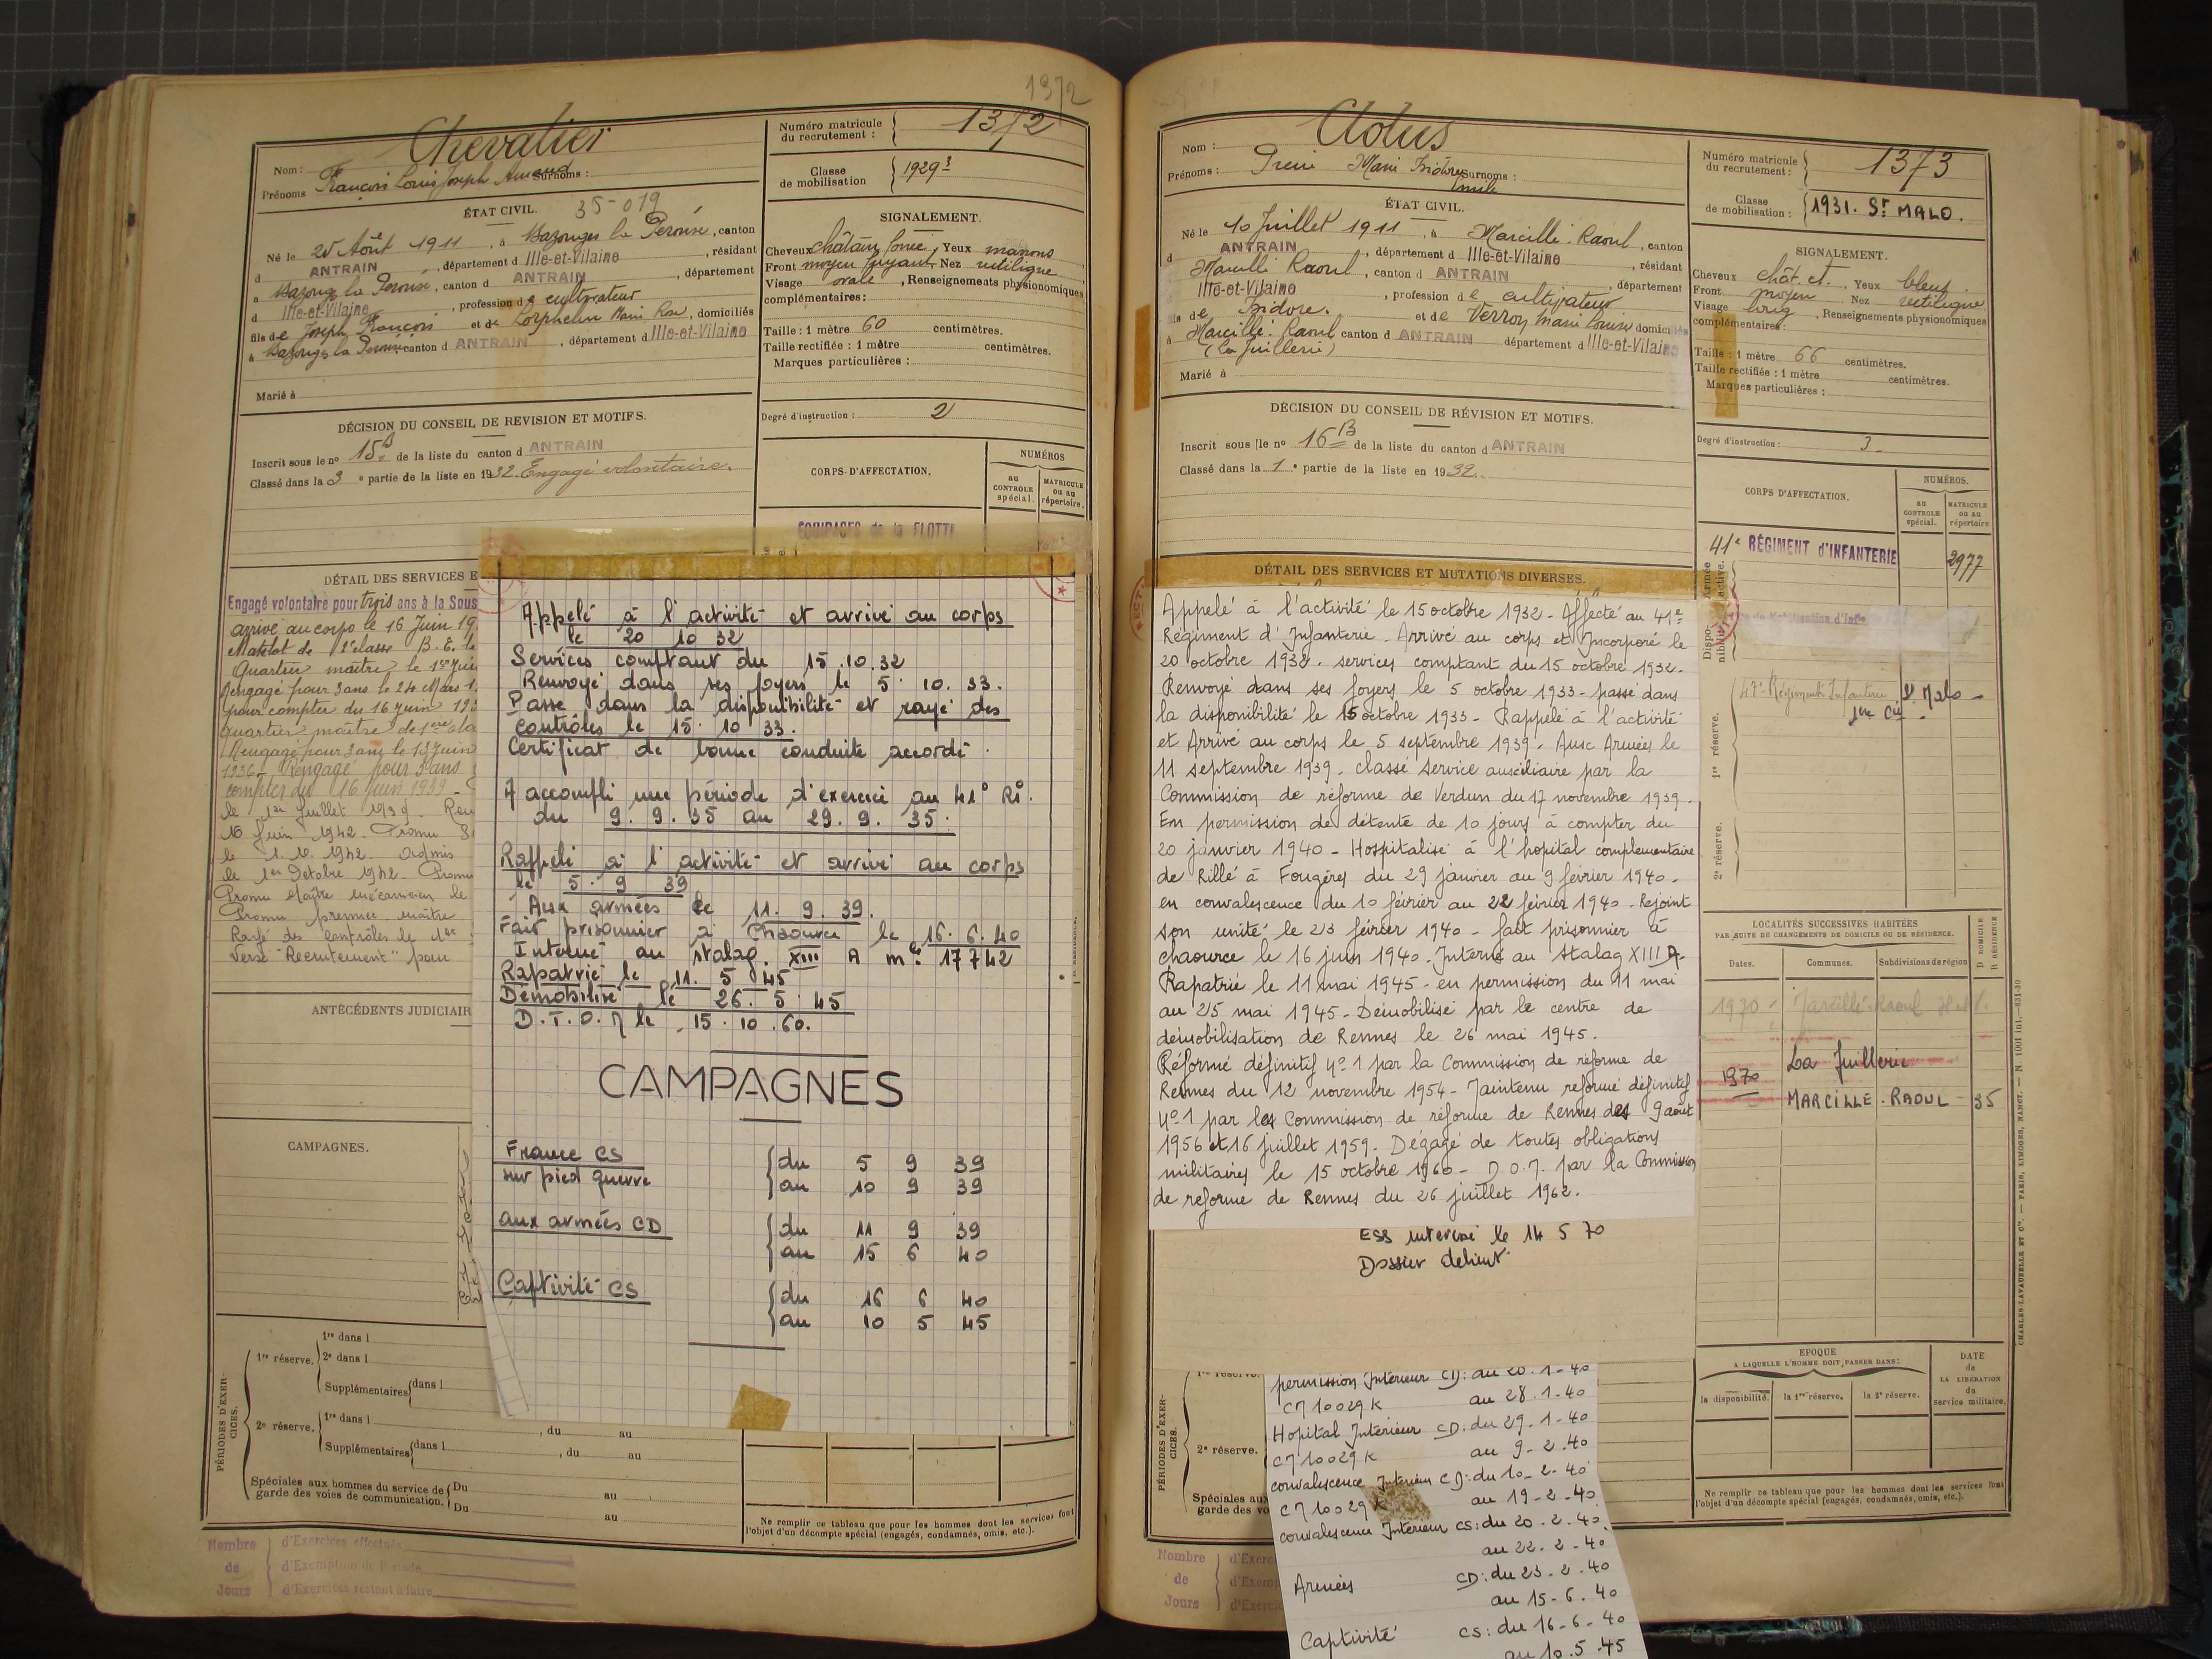 1372
Chevalier
Nom :
Prénoms François Louis Joseph Amand Surnoms :
Numéro matricule du recrutement : 1372
Classe de mobilisation 1929³
ÉTAT CIVIL. 35-079
Né le 25 Août 1911, à Bazouges la Pérouse, canton
d ANTRAIN, département d Ille-et-Vilaine, résidant
à Bazouges la Pérouse, canton d ANTRAIN, département
d Ille-et-Vilaine, profession de cultivateur
fils de Joseph François et de Lorphelin Marie Rose, domiciliés
à Bazouges la Pérouse, canton d ANTRAIN, département d Ille-et-Vilaine
Marié à
SIGNALEMENT.
Cheveux châtain foncé, Yeux marrons
Front moyen fuyant, Nez rectiligne
Visage ovale, Renseignements physionomiques
complémentaires :
Taille : 1 mètre 60 centimètres.
Taille rectifiée : 1 mètre centimètres.
Marques particulières :
DÉCISION DU CONSEIL DE REVISION ET MOTIFS.
Inscrit sous le nº 15 B de la liste du canton d ANTRAIN
Classé dans la 3 e partie de la liste en 1932. Engagé volontaire.
Degré d'instruction : 2
CORPS D'AFFECTATION.
NUMÉROS
au CONTROLE spécial.
MATRICULE ou au répertoire.
EQUIPAGES de la FLOTTE
DÉTAIL DES SERVICES E
Engagé volontaire pour trois ans à la Sous
arrivé au corps le 16 Juin 19
Matelot de 2e classe B. E. le
Quartier maître le 1er Juin
Rengagé pour 3 ans le 24 Mars 1
pour compter du 16 juin 193
Quartier maître de 1ère cla
Rengagé pour 3 ans le 13 juin
1936. Rengagé pour 3 ans
compter du 16 juin 1939 -
le 1er Juillet 1939. Ren
16 Juin 1942. Promu S
le 1. 10. 1942. Admis
le 1er Octobre 1942. Promu
Promu Maître mécanicien le
Promu premier maître
Rayé des contrôles le 1er
Versé "Recrutement" pour
ANTÉCÉDENTS JUDICIAIR
CAMPAGNES.
Appelé à l'activité et arrivé au corps
le 20 10 32
Services comptant du 15.10.32
Renvoyé dans ses foyers le 5. 10. 33.
Passé dans la disponibilité et rayé des
contrôles le 15. 10 33.
Certificat de bonne conduite accordé.
A accompli une période d'exercice au 41° RI.
du 9. 9. 35 au 29. 9. 35.
Rappelé à l'activité et arrivé au corps
le 5. 9 39
Aux armées le 11. 9. 39.
Fait prisonnier à Chaource le 16. 6. 40
Interné au stalag. XIII A mle 17742
Rapatrié le 11. 5 45
Démobilisé le 26. 5. 45
D.T.O.M le 15. 10. 60.
CAMPAGNES
France CS du 5 9 39
sur pied guerre au 10 9 39
aux armées CD du 11 9 39
au 15 6 40
Captivité CS du 16 6 40
au 10 5 45
PÉRIODES D'EXERCICES.
1re réserve. 1re dans l
2e dans l
Supplémentaires dans l
2e réserve. 1re dans l , du au
Supplémentaires dans l , du au
Spéciales aux hommes du service de garde des voies de communication. Du au
Du au
Ne remplir ce tableau que pour les hommes dont les services font
l'objet d'un décompte spécial (engagés, condamnés, omis, etc.).
Nombre de Jours
d'Exercices effectués
d'Exemption de Période
d'Exercices restant à faire
Clolus
Nom :
Prénoms : Pierre Marie Isidore Emile Surnoms :
Numéro matricule du recrutement : 1373
Classe de mobilisation : 1931. St MALO.
ÉTAT CIVIL.
Né le 10 Juillet 1911, à Marcillé-Raoul, canton
d ANTRAIN, département d Ille-et-Vilaine, résidant
Marcillé Raoul, canton d ANTRAIN, département
Ille-et-Vilaine, profession de cultivateur
fils de Isidore. et de Verron Marie Louise domiciliés
à Marcillé-Raoul canton d ANTRAIN département d Ille-et-Vilaine
(La Juillerie)
Marié à
SIGNALEMENT.
Cheveux chât. ct. Yeux bleus.
Front moyen Nez rectiligne
Visage long, Renseignements physionomiques
complémentaires :
Taille : 1 mètre 66 centimètres.
Taille rectifiée : 1 mètre centimètres.
Marques particulières :
DÉCISION DU CONSEIL DE RÉVISION ET MOTIFS.
Inscrit sous le nº 16 B de la liste du canton d ANTRAIN
Classé dans la 1 e partie de la liste en 1932.
Degré d'instruction : 3.
CORPS D'AFFECTATION.
NUMÉROS.
au CONTROLE spécial.
MATRICULE ou au répertoire
Armée active.
41e RÉGIMENT d'INFANTERIE 2977
Disponibilité
47e Régiment Infanterie St Malo -
1re Cie
1re réserve.
2e réserve.
DÉTAIL DES SERVICES ET MUTATIONS DIVERSES.
Appelé à l'activité le 15 octobre 1932 - Affecté au 41e
Régiment d'Infanterie - Arrivé au corps et Incorporé le
20 octobre 1932. services comptant du 15 octobre 1932.
Renvoyé dans ses foyers le 5 octobre 1933 - passé dans
la disponibilité le 15 octobre 1933 - Rappelé à l'activité
et Arrivé au corps le 5 septembre 1939 - Aux Armées le
11 septembre 1939 - classé service auxiliaire par la
Commission de réforme de Verdun du 17 novembre 1939.
En permission de détente de 10 jours à compter du
20 janvier 1940 - Hospitalisé à l'hopital complementaire
de Rillé à Fougères du 29 janvier au 9 février 1940 -
en convalescence du 10 février au 22 février 1940. Rejoint
son unité le 23 février 1940 - fait prisonnier à
chaource le 16 juin 1940. Interné au Stalag XIII A.
Rapatrié le 11 mai 1945 - en permission du 11 mai
au 25 mai 1945 - Démobilisé par le centre de
démobilisation de Rennes le 26 mai 1945.
Réformé définitif nº 1 par la Commission de réforme de
Rennes du 12 novembre 1954 - Maintenu réformé définitif
nº 1 par les Commission de réforme de Rennes des 9 août
1956 et 16 juillet 1959 - Dégagé de toutes obligations
militaires le 15 octobre 1960 - D.O.M. par la Commission
de réforme de Rennes du 26 juillet 1962.
ESS interviré le 14 5 70
Dossier détruit
LOCALITÉS SUCCESSIVES HABITÉES
PAR SUITE DE CHANGEMENTS DE DOMICILE OU DE RÉSIDENCE.
Dates. Communes. Subdivisions de région D DOMICILE R RÉSIDENCE
1970 Marcillé-Raoul
1970 La Juillerie
MARCILLE-RAOUL - 35
CHARLES-LAVAUZELLE ET Cie. — PARIS, LIMOGES, NANCY. — N. 1001 int.—831-30
EPOQUE
A LAQUELLE L'HOMME DOIT PASSER DANS :
la disponibilité. la 1re réserve. la 2e réserve.
DATE de LA LIBÉRATION du service militaire.
PÉRIODES D'EXERCICES.
1re réserve.
2e réserve.
Spéciales aux
garde des vo
permission Intérieur CD: du 20.1-40
CM 10029 K au 28.1-40
Hopital Intérieur CD: du 29-1-40
CM 10029 K au 9-2-40
convalescence Intérieur CD: du 10-2-40
CM 10029 K au 19-2-40
convalescence Intérieur CS: du 20-2-40
au 22-2-40
Armées CD: du 23-2-40
au 15-6-40
Captivité CS: du 16-6-40
au 10.5-45
Ne remplir ce tableau que pour les hommes dont les services font
l'objet d'un décompte spécial (engagés, condamnés, omis, etc.).
Nombre de Jours
d'Exerc
d'Exemp
d'Exercic